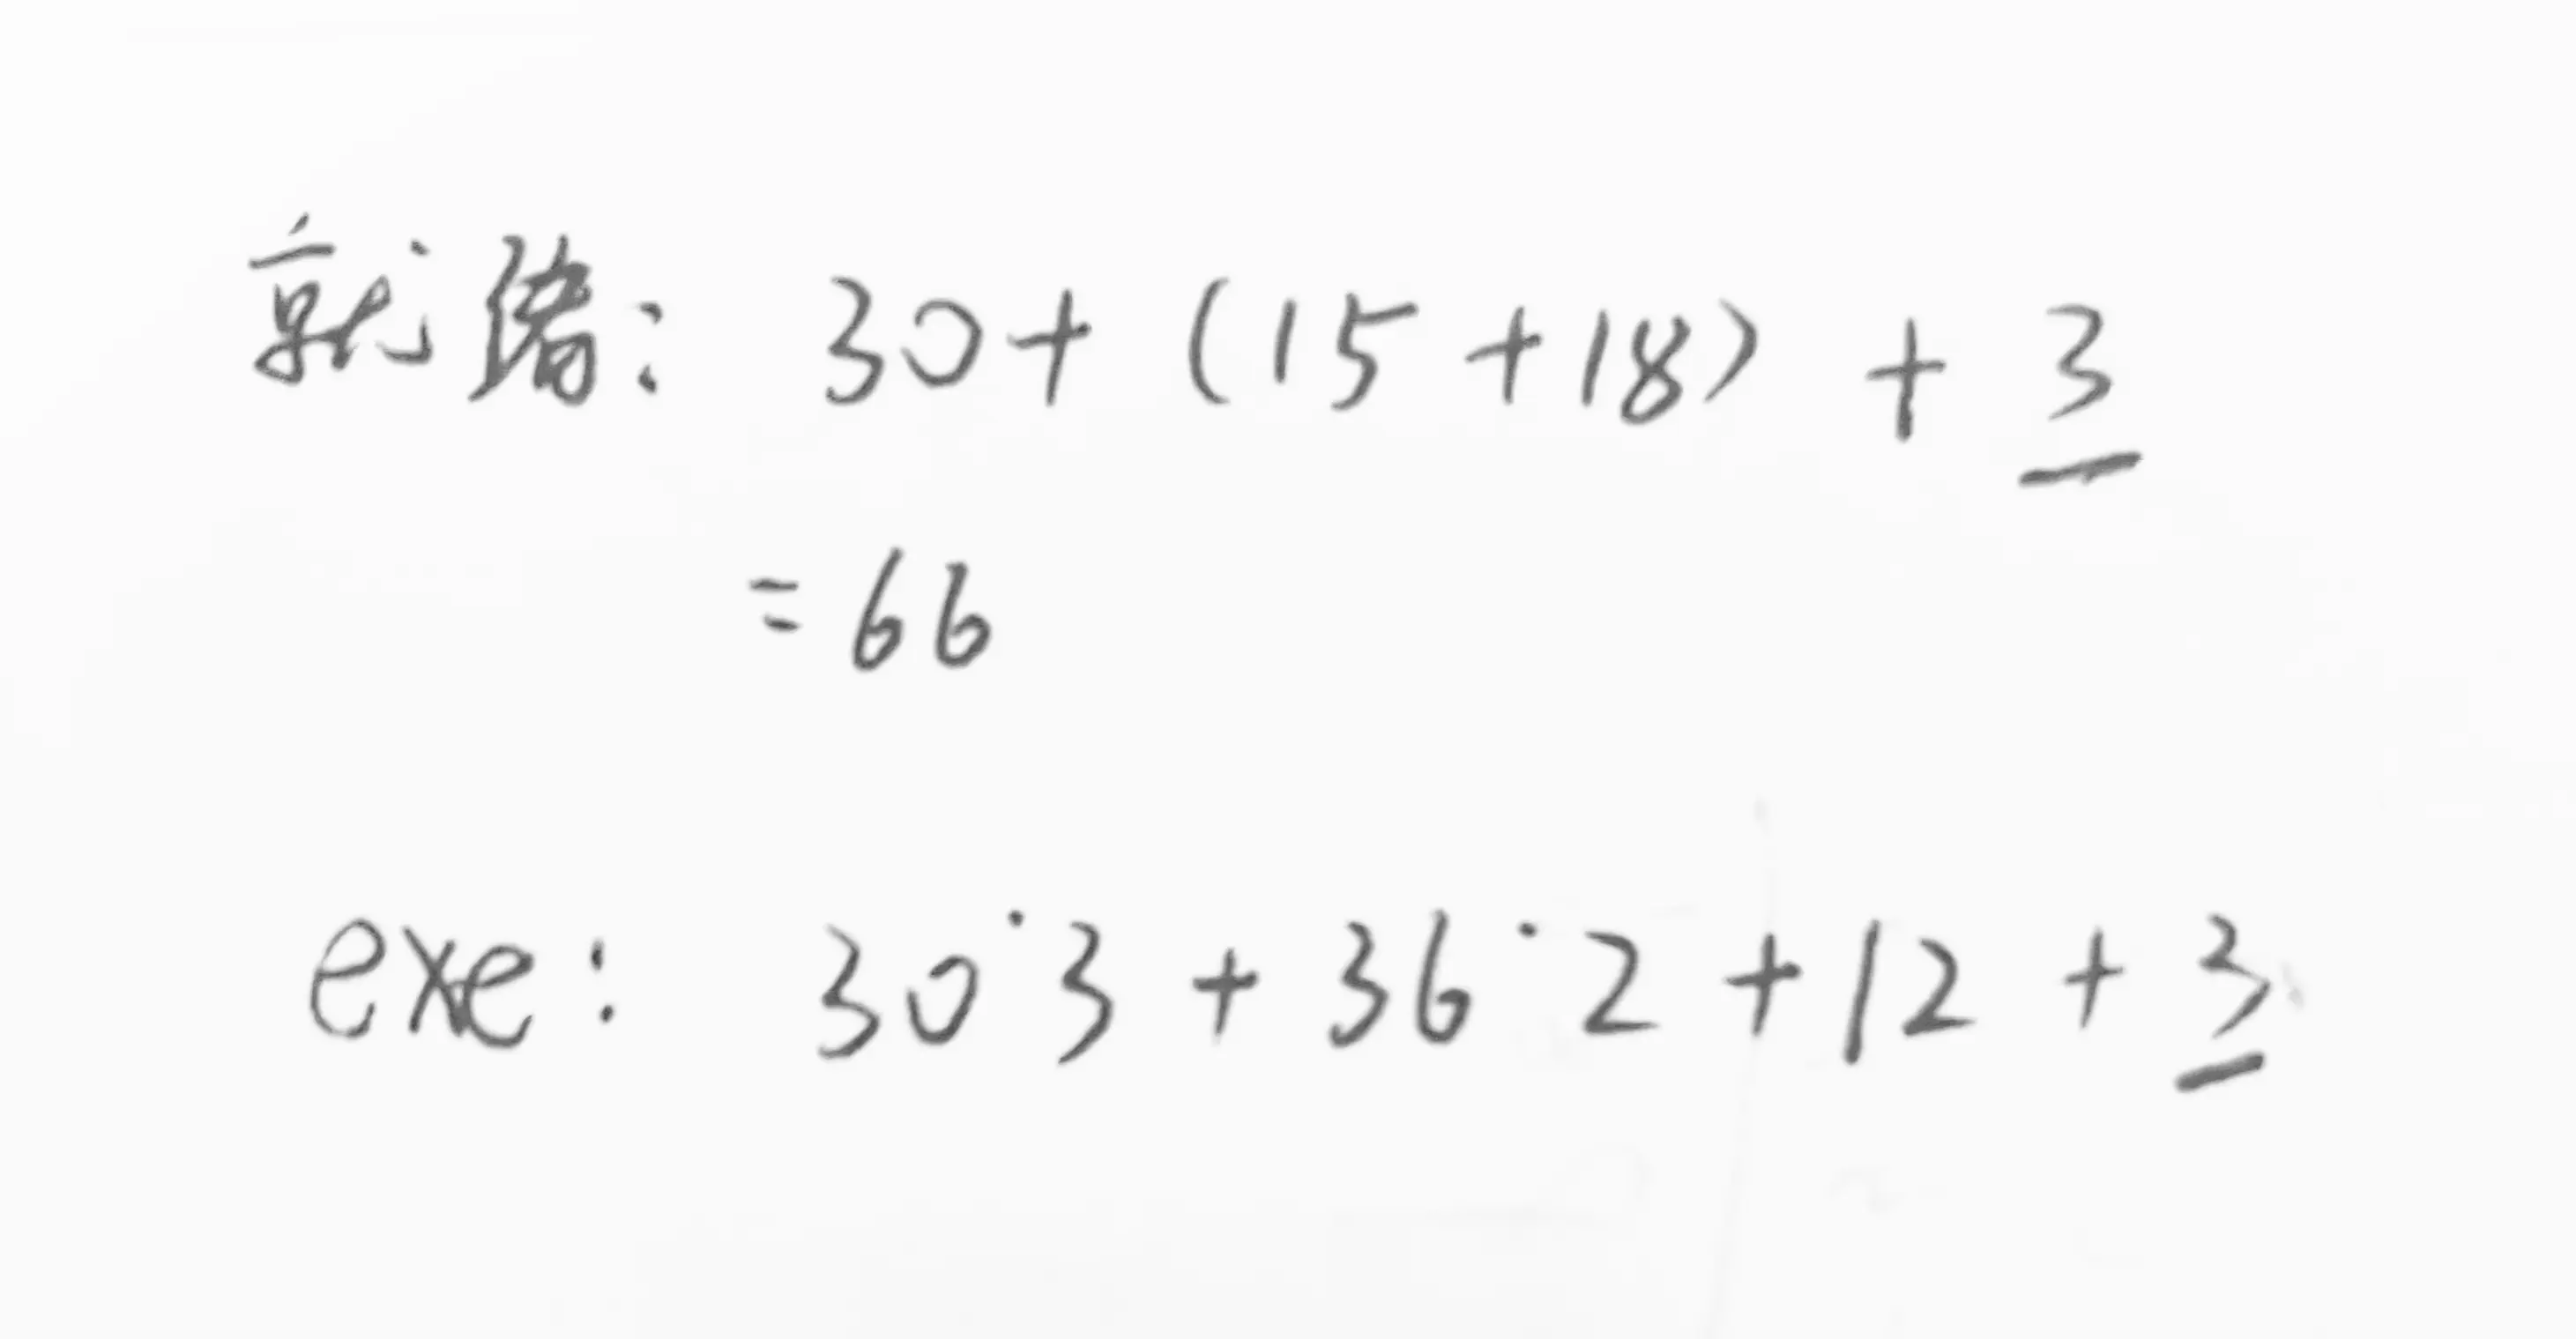 就绪: 30+(15+18)+3
=66
exe: 30·3+36·2+12+3